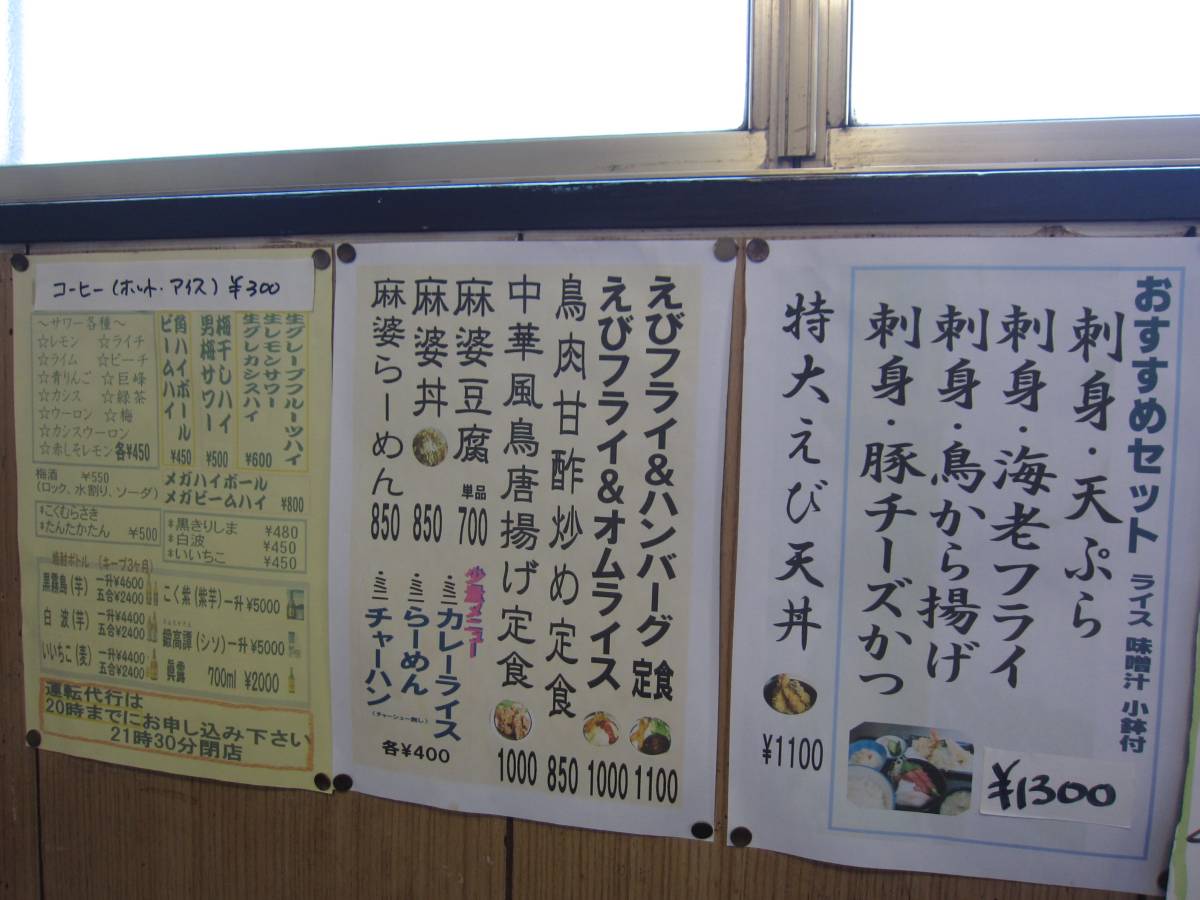 コーヒー(ホット・アイス) ¥300
〜サワー各種〜
☆レモン ☆ライチ
☆ライム ☆ピーチ
☆青りんご ☆巨峰
☆カシス ☆緑茶
☆ウーロン ☆梅
☆カシスウーロン
☆赤しそレモン 各¥450
角ハイボール
ビームハイ ¥450
梅干しハイ
男梅サワー ¥500
生グレープフルーツハイ
生レモンサワー
生グレカシスハイ ¥600
梅酒 ¥550
(ロック、水割り、ソーダ)
メガハイボール
メガビームハイ ¥800
*こくむらさき
*たんたかたん ¥500
*黒きりしま ¥480
*白波 ¥450
*いいちこ ¥450
焼酎ボトル (キープ3ヶ月)
黒霧島(芋) 一升¥4600
五合¥2400
白 波(芋) 一升¥4400
五合¥2400
いいちこ(麦) 一升¥4400
五合¥2400
こく紫(紫芋)一升¥5000
鍛高譚(シソ)一升¥5000
眞露 700ml ¥2000
運転代行は
20時までにお申し込み下さい
21時30分閉店
えびフライ&ハンバーグ 定食 1100
えびフライ&オムライス 1000
鳥肉甘酢炒め定食 850
中華風鳥唐揚げ定食 1000
麻婆豆腐 単品 700
麻婆丼 850
麻婆らーめん 850
少量メニュー
ミニカレーライス
ミニらーめん
(チャーシュー無し)
ミニチャーハン
各¥400
おすすめセット ライス 味噌汁 小鉢付
刺身・天ぷら
刺身・海老フライ
刺身・鳥から揚げ
刺身・豚チーズかつ
¥1300
特大えび天丼
¥1100